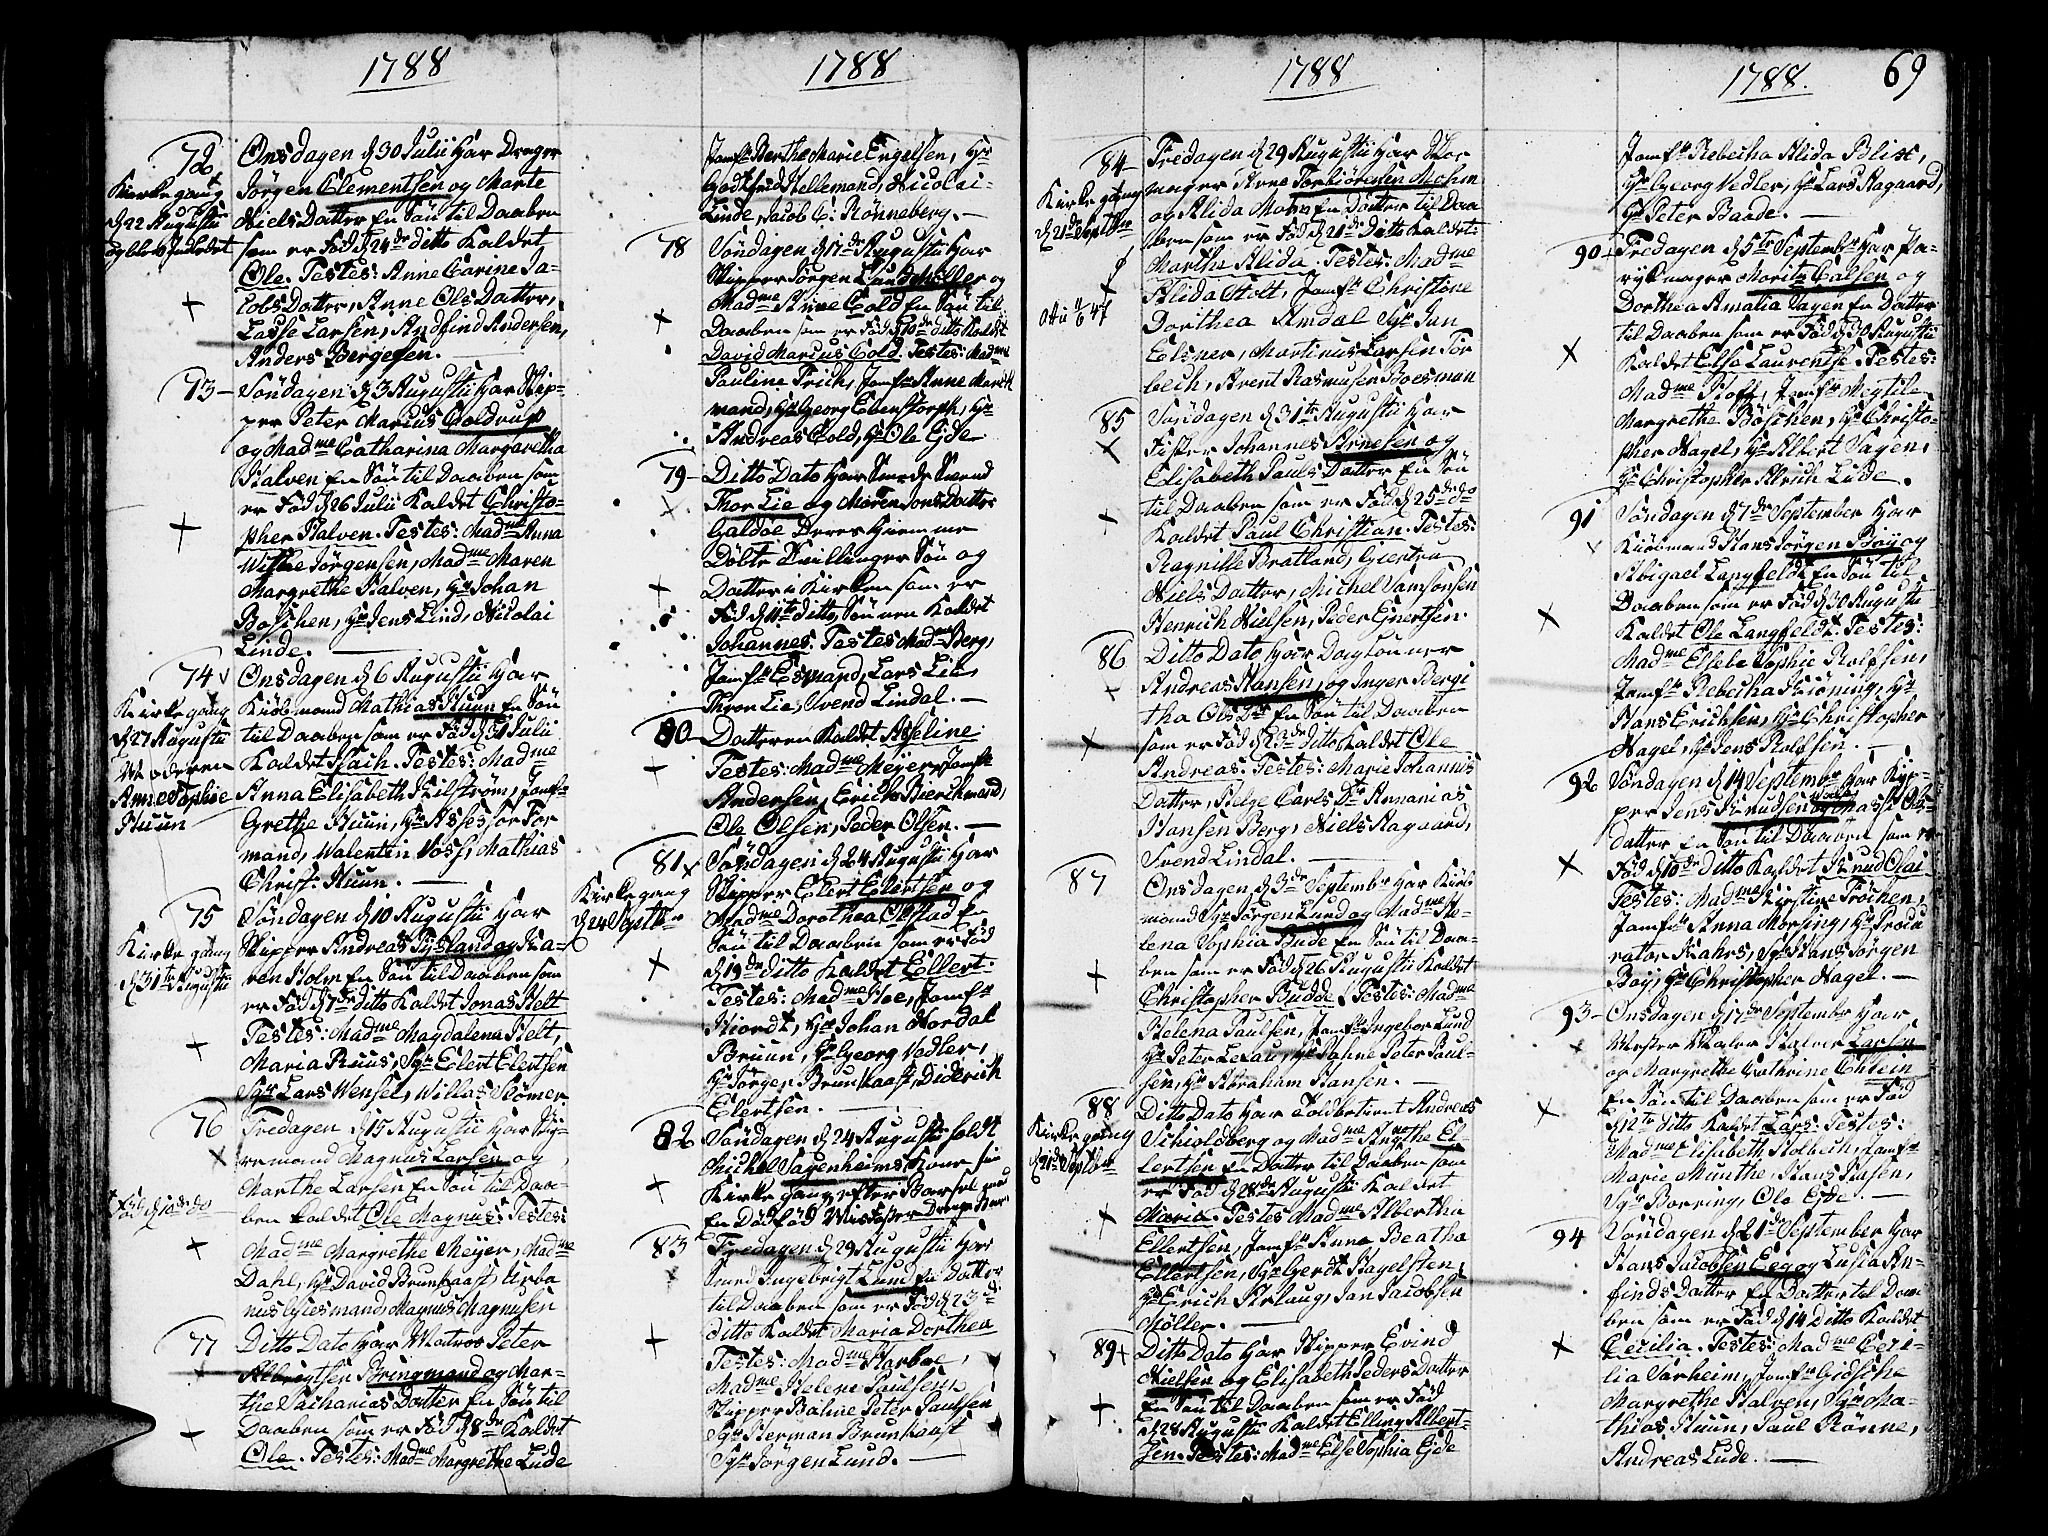 1788
72
Kirkegang
d 22 Augustii
og blev Indledet
Onsdagen d 30 Julii har Drager
Jörgen Clementsen og Marte
Niels Datter En Sön til Daaben
som er Föd d 24de ditto Kaldet
Ole. Testes: Anne Carine Ja-
cobs Datter, Anne Ols Datter,
Lasse Larsen, Andfind Andersen,
Anders Bergesen.
73
Söndagen d 3 Augustii har Skip-
per Peter Marius Coldrup
og Madme Catharina Margaretha
Halven En Sön til Daaben som
er Föd d 26 Julii Kaldet Christo-
pher Halven. Testes: Madme Anna
Jörgensen, Madme Maren
Margrethe Halven, Hr Johan
Böschen, Hr Jens Lind, Nicolai
Linde.
74
Kirkegang
d 27 Augustii
Moderen
Anne Sophie
Huun
Onsdagen d 6 Augustii har
Kiöbmand Mathias Huun En Sön
til Daaben som er Föd d 31 Julii
Kaldet Isach. Testes: Madme
Anna Elisabeth Kilström, Jomfr
Grethe Huun, Hr Assessor For
mand, Walentin Voss, Mathias
Christ: Huun.
75
Kirkegang
d 31te Augustii
Söndagen d 10 Augustii har
Skipper Andreas Tysland og Ka-
ren Holm En Sön til Daaben som
er Föd d 7de ditto Kaldet Jonas Helt
Testes: Madme Magdalena Helt,
Maria Ruus, Sr Elert Elertsen
Sr Lars Wensel, Willas Römer
76
Föd d 10de do
Fredagen d 15 Augustii har Sty-
remand Magnus Larsen og
Marthe Larsen En Sön til Daa-
ben kaldet Ole Magnus. Testes:
Madme Margrethe Meyer, Madme
Dahl, Hr David Brunkaast, Urba
nus Giesmand, Magnus Magnusen
77
Ditto Dato har Matros Peter
Albrigtsen Bringmand og Mar-
the Zachanias Datter En Sön til
Daaben som er Föd d 8de Kaldet
Ole. Testes: Madme Margrethe Lude
1788
Jomfr Berthe Marie Engelsen, Hr
Godtfried Hellemand, Nicolai
Linde, Jacob C: Rönneberg.
78
Söndagen d 17de Augustii har
Skipper Jörgen Lund Möller og
Madme Anne Cold En Sön til
Daaben som er Föd d 10de ditto Kaldet
David Marcus Cold. Testes: Madme
Pauline Frich, Jomfr Anne
mand, Hr Georg Ebenstorph, Hr
Andreas Cold, Hr Ole Gjde
79
Ditto Dato har Smede Svend
Thor Lie og Maren Jons Datter
Galdöe Deres Hiemme
Döbte Tvillinger Sön og
Datter i Kirken som er
Föd d 11te ditto, Sönnen Kaldet
Johannes. Testes Madme Berg,
Jomfr Esmand, Lars Lie,
Thron Lie, Svend Lindal.
80
Datteren Kaldet Asseline
Testes: Madme Meyer, Jomfr
Andersen, Erich Bierchmand,
Ole Olsen, Peder Olsen.
81
Kirkegang
d 24 Septbr
Söndagen d 24 Augustii har
Skipper Elert Elertsen og
Madme Dorothea Olstad En
Sön til Daaben som er Föd
d 19de ditto Kaldet Ellert:
Testes: Madme Hoe, Jomfr
Hiordt, Hr Johan Nordal
Bruun, Hr Georg Vedler,
Hr Jörgen Brunkaast, Diderich
Elertsen.
82
Söndagen d 24 Augustii holdt
Michel Sagenheims Kone sin
Kirkegang efter Barsel med
En Dödföd
83
Fredagen d 29 Augustii har
Svend Ingebrigt Lund En Datter
til Daaben som er Föd d 23de
ditto Kaldet Maria Dorthea
Testes: Madme Harboe,
Madme Helene Paulsen,
Skipper Bahne Peter Paulsen
Sr Herman Brunkaast
Sr Jörgen Lund.
1788
84
Kirkegang
d 21de Septbr
Fredagen d 29 Augustii har
mager Arne Torbiörnsen Mohm
og Alida Mohn En Datter til Daa
ben som er Föd d 21de Ditto Kaldet:
Marthe Alida. Testes: Madme
Alida Holt, Jomfr Christine
Dorthea Amdal Sr Jan
Elsner, Martinus Larsen Tor
bech, Arent Rasmusen Boesman
85
Söndagen d 31te Augustii har
Fisker Johannes Arnesen og
Elisabeth Pauls Datter En Sön
til Daaben som er Föd d 25de do
Kaldet Paul Christian. Testes:
Ragnille Bratland, Giertru
Niels Datter, Michel Samsonsen
Henrich Nielsen, Peder Ejnertsen.
86
Ditto Dato har Daglönner
Andreas Hansen, og Inger Bergi
tha Ols Dr En Sön til Daaben
som er Föd d 23de ditto kaldet Ole
Andreas. Testes: Marie Johannes
Datter, Helge Carls Dr Annanias
Hansen Berg, Niels Aagaard,
Svend Lindal.
87
Onsdagen, d 3de Septembr har Kiöb
mand Sr Jörgen Lund og Madme He-
lena Sophia Bude En Sön til Daa-
ben som er Föd d 26 Augustii Kaldet
Christopher Budde. Testes: Madme
Helena Paulsen, Jomfr Ingebor Lund
Hr Peter Lexau, Hr Bahne Peter Paul-
sen, Hr Abraham Hansen.
88
Kirkegang
d 21de Septbr
Ditto Dato har Toldbetient Andreas
Schioldberg og Madme Agnethe El-
lertsen En Datter til Daaben som
er Föd d 28de Augustii Kaldet
Maria. Testes Madme Albertha
Ellertsen, Jomfr Anna Beatha
Ellertsen, Sr Gerdt Hagelsten,
Hr Erich Arlaug, Jan Jacobsen
Möller.
89
Ditto Dato har Skipper Evind
Nielsen og Elisabeth Peders Datter
En Sön til Daaben som er Föd
d 28 Augustii Kaldet Elling Albert-
Jen. Testes: Madme Else Sophia Gjde
1788.
69
Jomfr Rebecha Alida Blix,
Hr Georg Vedler, Hr Lars Aagaard,
Hr Peter Baade.
90
Fredagen d 5te Septembr har Pa-
rykmager Moritz Calsen og
Dorthea Amalia Sagen En Datter
til Daaben som er Föd d 30 Augustii
Kaldet Elsa Laurentse. Testes:
Madme Hoff, Jomfr Megtile
Margrethe Böschen, Hr Christo-
pher Nagel, Hr Albert Sagen,
Hr Christopher Alrich Lude.
91
Söndagen d 7de September har
Kiöbmand Hans Jörgen Böy og
Abigael Langfeldt En Sön til
Daaben som er Föd d 30 Augustii
Kaldet Ole Langfeldt. Testes:
Madme Elsebe Sophie Rolfsen,
Jomfr Rebecha Kröning, Hr
Hans Erichsen, Hr Christopher
Nagel, Hr Jens Rolfsen.
92
Söndagen d 14 Septembr har Kyp-
per Jens Knudsen og Ols-
datter En Sön til Daaben som er
Föd d 10de Ditto Kaldet Knud Olai
Testes: Madme Kirstine Fröchen,
Jomfr Anna Morsing, Hr Procu
rator Krahrs, Sr Hans Jörgen
Böy, Hr Christopher Nagel.
93
Onsdagen d 17de Septembr har
Mester Maler Halvor Larsen
og Margrethe Cathrine Chlein
En Sön til Daaben som er Föd
d 12te ditto Kaldet Lars. Testes:
Madme Elisabeth Holbech, Jomfr
Marie Munthe, Hans Jansen,
Sr Borring, Ole Gjde.
94
Söndagen d 21de September har
Hans Jacobsen Eeg og Lusia An-
finds Datter En Datter til Daa
ben som er Föd d 14 Ditto Kaldet
Cecilia. Testes: Madme Ceci-
lia Varheim, Jomfr Gidsche
Margrethe Halven, Sr Ma-
thias Huun, Paul Rönne,
Andreas Lude.